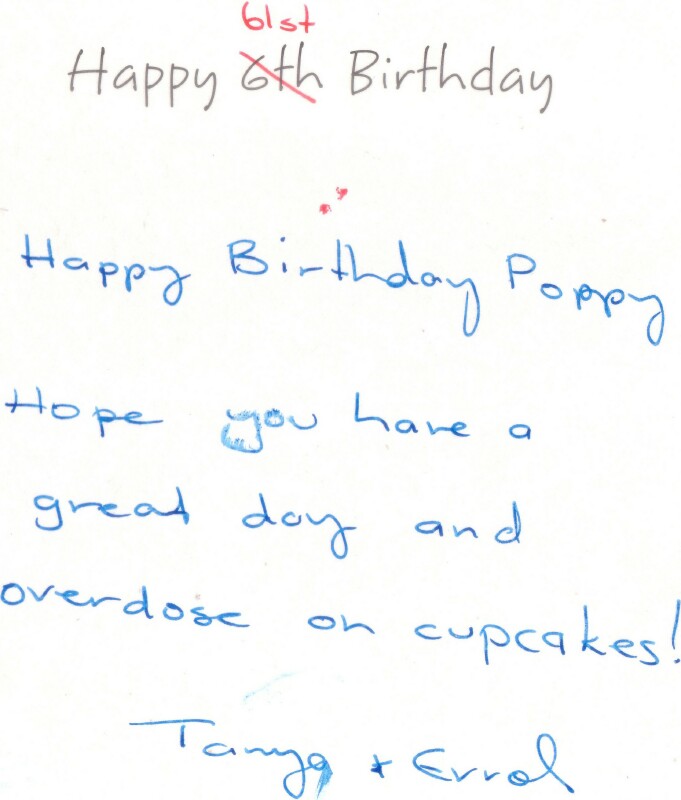 61st
Happy 6th Birthday
Happy Birthday Poppy
Hope you have a
great day and
overdose on cupcakes!
Tanya + Errol